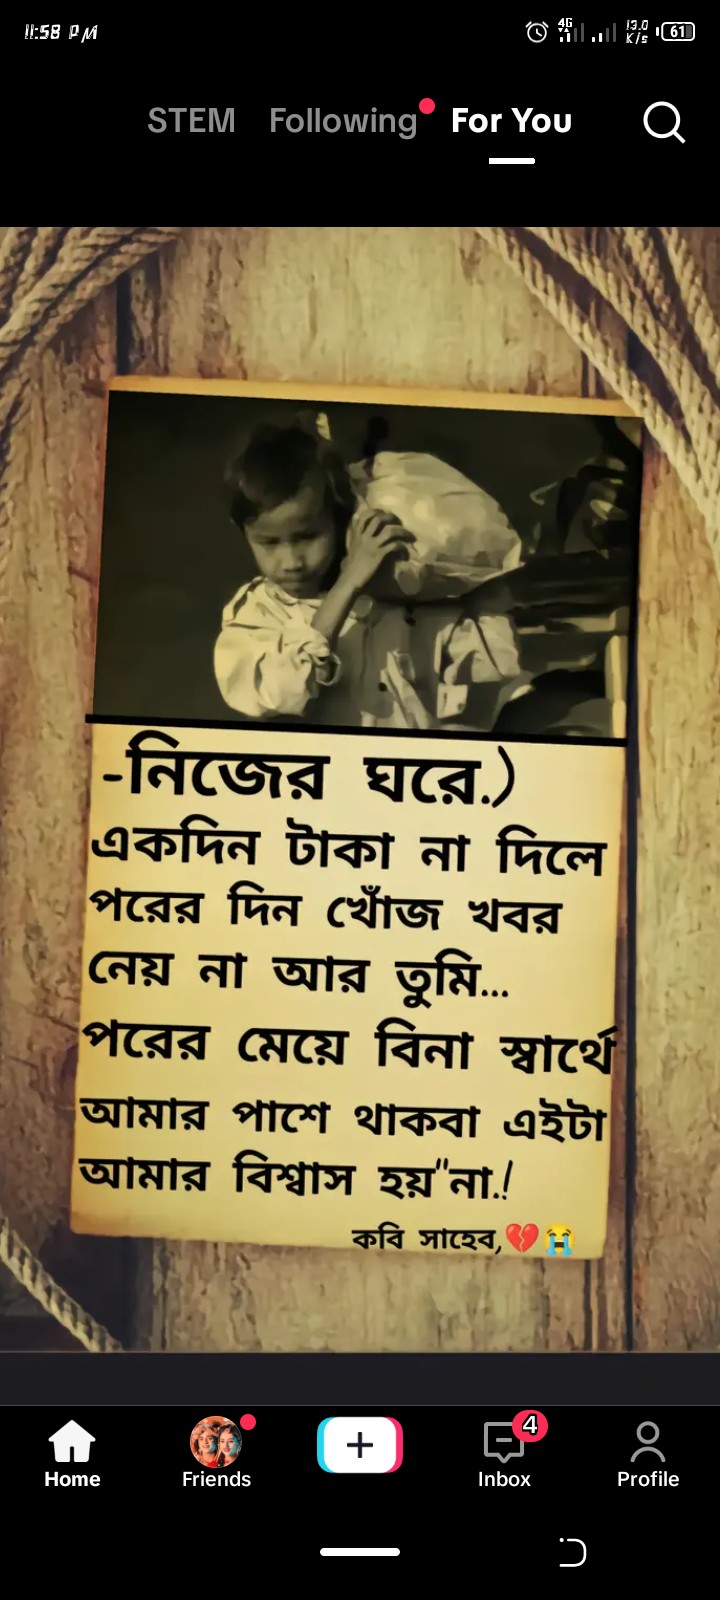 11:58 PM
4G
13.0
K/s
61
STEM Following For You
-নিজের ঘরে.)
একদিন টাকা না দিলে
পরের দিন খোঁজ খবর
নেয় না আর তুমি...
পরের মেয়ে বিনা স্বার্থে
আমার পাশে থাকবা এইটা
আমার বিশ্বাস হয়"না.!
কবি সাহেব,💔😭
4
Home Friends Inbox Profile